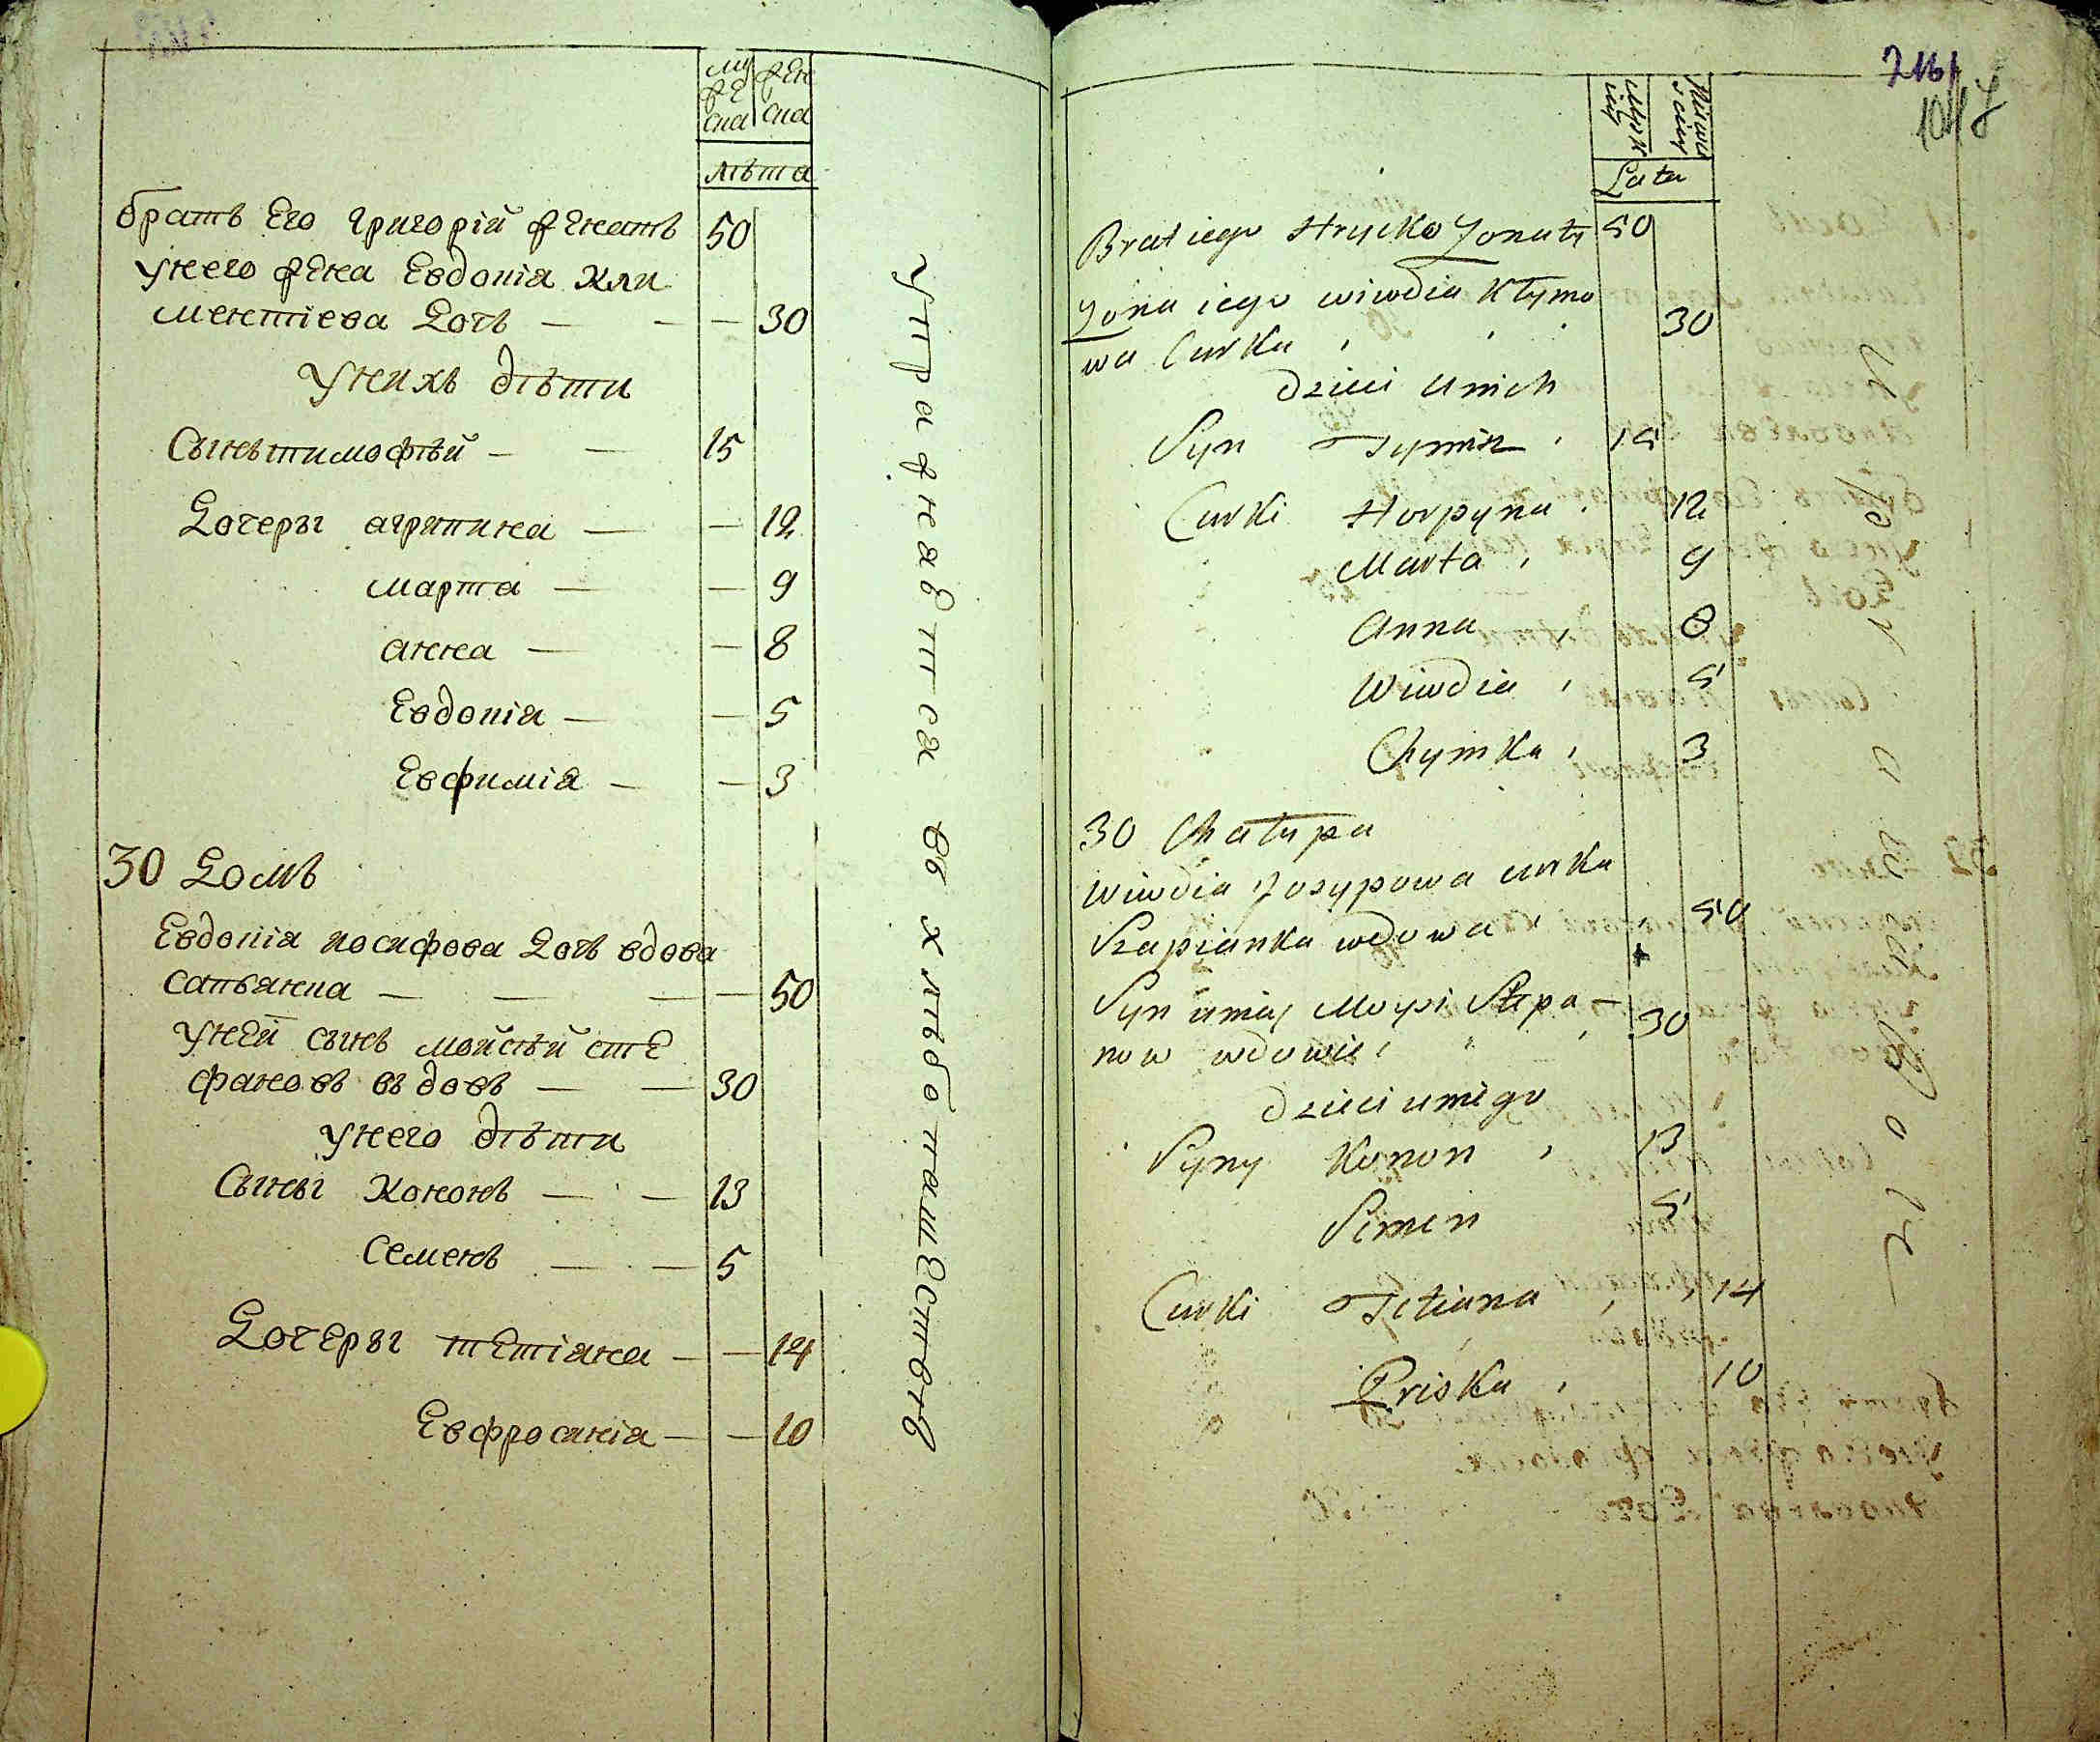 мужеска женска
лѣта
братъ Его григорій женатъ 50
унего жена Евдокія кли
ментіева дочь — — — 30
унихъ дѣти
Сынъ тимофѣй — — 15
дочеры агрипина — — 12
марта — — 9
анна — — 8
Евдокія — — 5
Евфимія — — 3
30 домъ
Евдокія иосифова дочь вдова
сапѣянка — — — — 50
унЕй сынъ мойсѣй стЕ
фановъ вдовъ — — 30
унего дѣти
Сыны кононъ — — 13
семенъ — — 5
дочЕры тЕтіана — — 14
Евфросинія — — 10
упражнаЕтса въ хлѣбопашЕствѣ
716
1047
Lata
Brat iego Hrycko Zonaty 50
Zona iego wiwdia Kłymo
wa Curka 30
dzieci unich
Syn Tymisz 15
Curki Horpyna 12
Marta 9
Anna 8
Wiwdia 5
Chymka 3
30 Chałupa
Wiwdia Jozypowa curka
Szapianka wdowa 50
Syn uniey Moysi Stepa-
now wdowiec 30
dzieci uniego
Syny Konon 13
Simen 5
Curki Tetiana 14
Priska 10